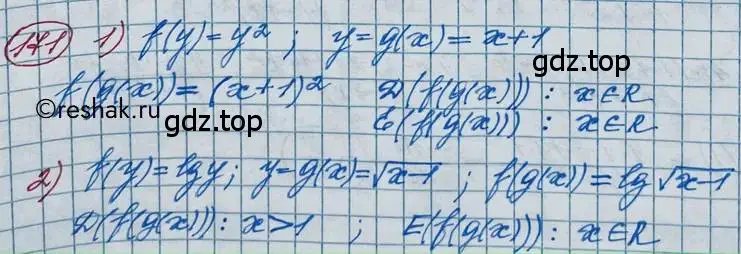 171 1) f(y) = y² ; y = g(x) = x+1
гдз.top
f(g(x)) = (x+1)² D(f(g(x))) : x∈R
©reshak.ru
гдз.top
E(f(g(x))) : x∈R
2) f(y) = lg y; y = g(x) = √(x-1) ; f(g(x)) = lg √(x-1)
D(f(g(x))) : x>1 ; E(f(g(x))) : x∈R